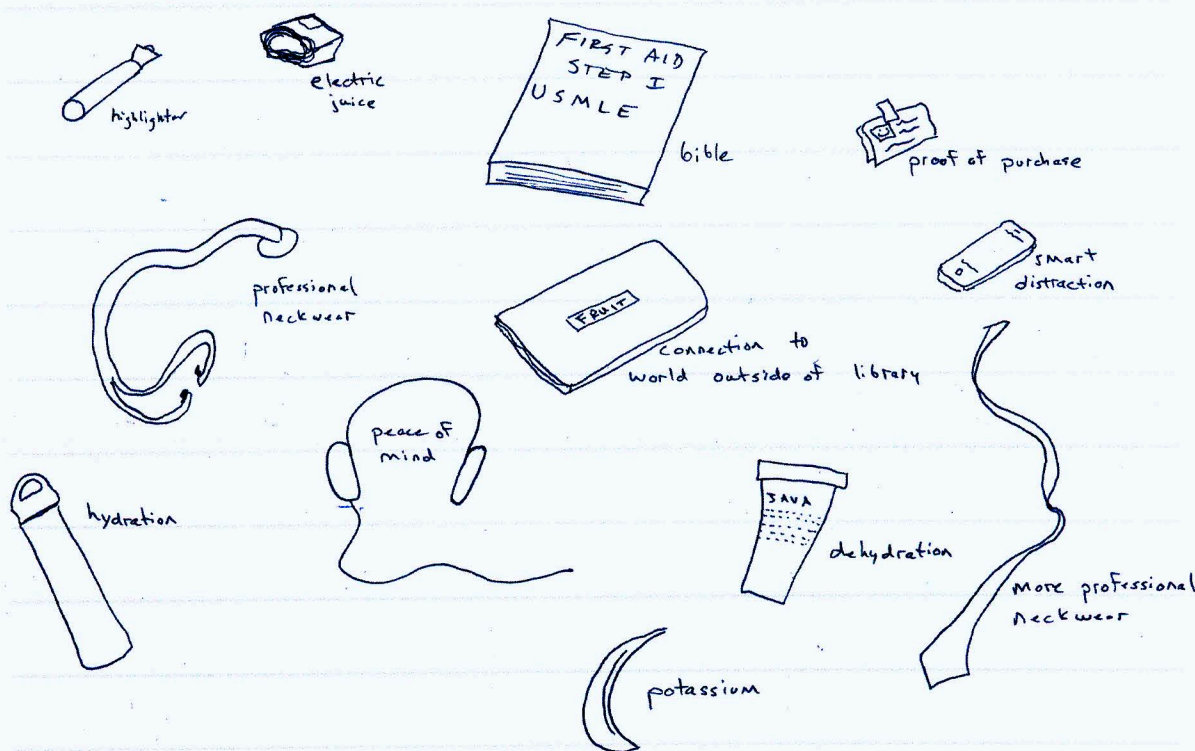 highlighter
electric
juice
FIRST AID
STEP I
USMLE
bible
proof of purchase
professional
neckwear
FRUIT
connection to
world outside of library
smart
distraction
peace of
mind
hydration
JAVA
dehydration
more professional
neckwear
potassium